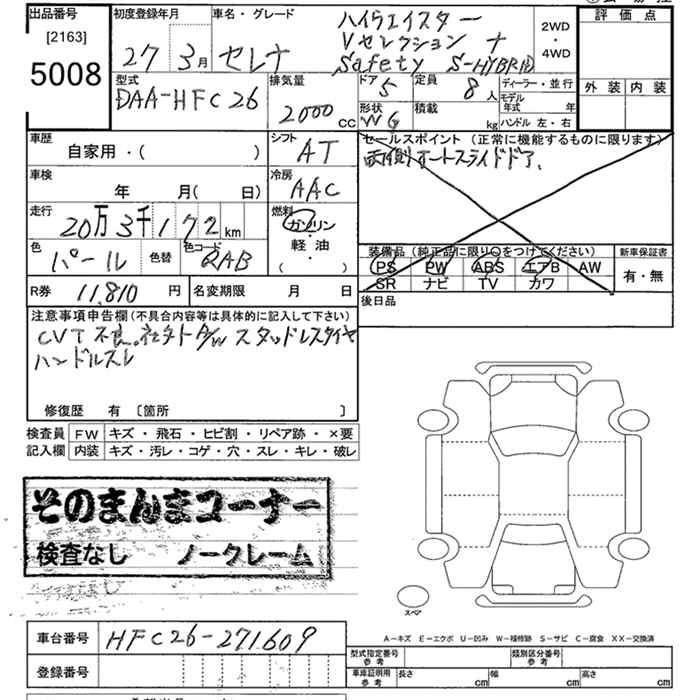 出品番号
[2163]
5008
初度登録年月
27 3月
車名・グレード
セレナ
ハイウェイスター
Vセレクション +
Safety S-HYBRID
2WD
・
4WD
評価点
外装 内装
型式
DAA-HFC26
排気量
2000 cc
ドア
5
定員
8人
形状
WG
積載
kg
ディーラー・並行
モデル年式 年
ハンドル 左・右
車歴
自家用・( )
シフト
AT
車検
年 月( 日)
冷房
AAC
走行
20万3千172km
燃料
ガソリン
・
軽油
( )
色
パール
色替
色コード
QAB
R券 11,810 円
名変期限 月 日
セールスポイント (正常に機能するものに限ります)
両側オートスライドドア、
装備品 (純正品に限り○をつけてください)
PS PW ABS エアB AW
SR ナビ TV カワ
新車保証書
有・無
後日品
注意事項申告欄 (不具合内容等は具体的に記入して下さい)
CVT不良。社外 A/W スタッドレスタイヤ
ハンドルスレ
修復歴 有 〔箇所 〕
検査員記入欄
FW キズ・飛石・ヒビ割・リペア跡・×要
内装 キズ・汚レ・コゲ・穴・スレ・キレ・破レ
そのまんまコーナー
検査なし ノークレーム
スペア
A−キズ E−エクボ U−凹み W−補修跡 S−サビ C−腐食 XX−交換済
車台番号 HFC26-271609
登録番号
型式指定番号
参考
類別区分番号
参考
車庫証明用
参考
長さ cm
幅 cm
高さ cm